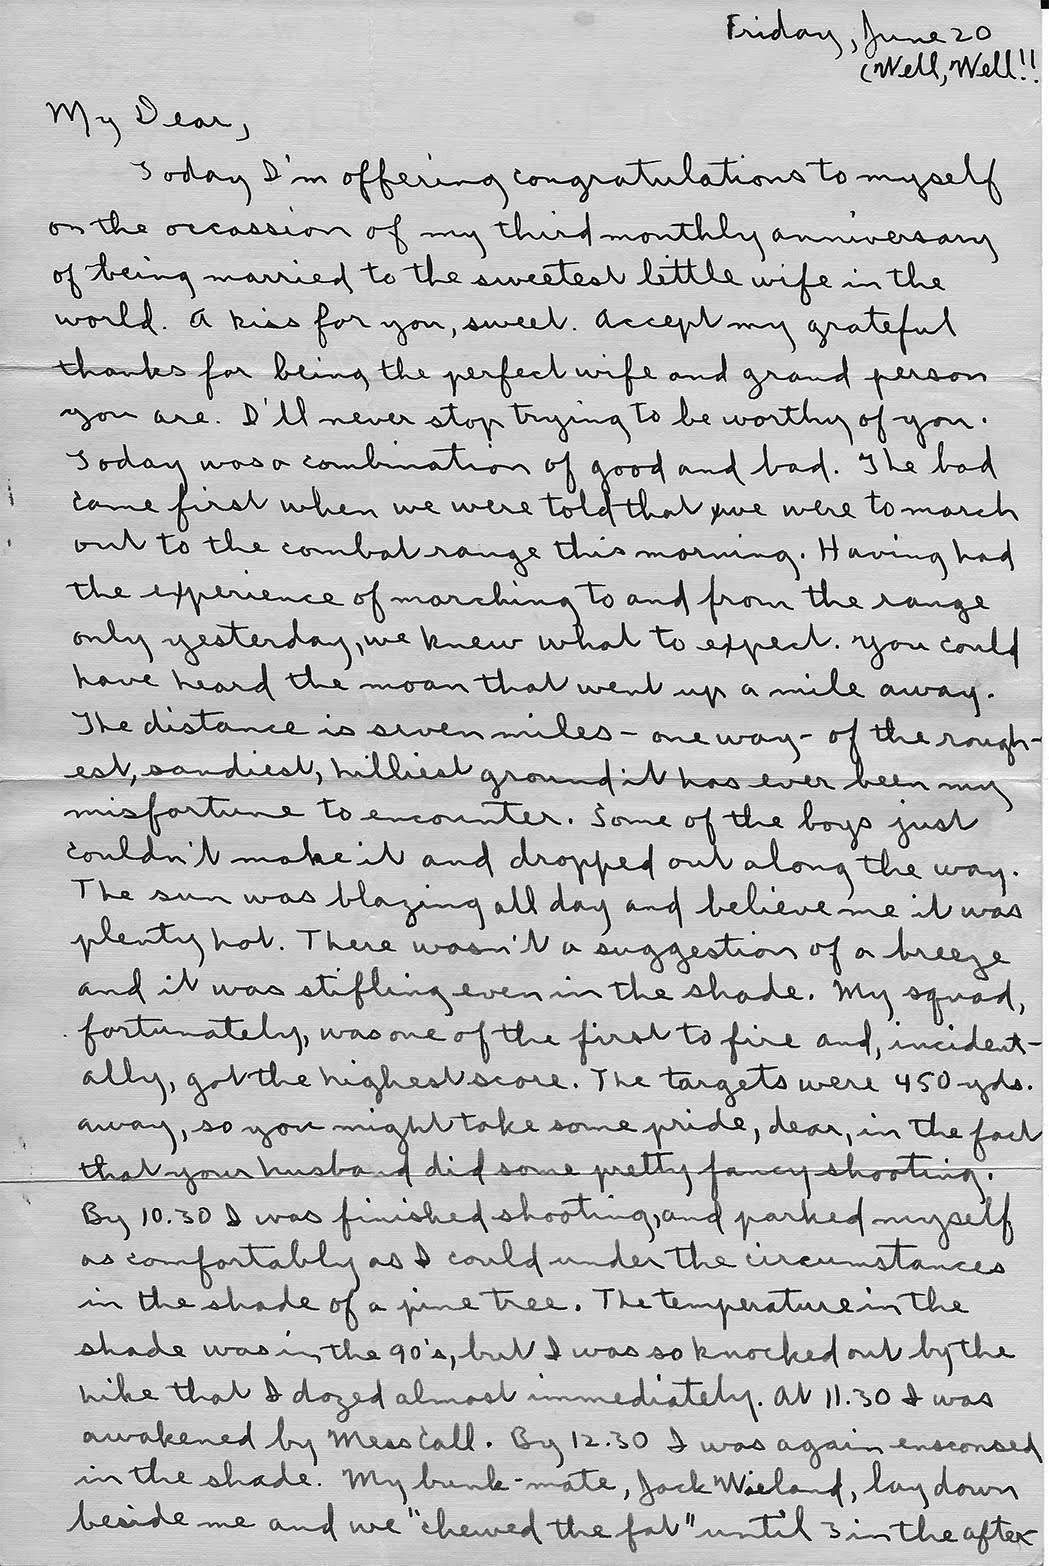 Friday, June 20
(Well, Well!!
My Dear,
Today I'm offering congratulations to myself
on the occassion of my third monthly anniversary
of being married to the sweetest little wife in the
world. A kiss for you, sweet. Accept my grateful
thanks for being the perfect wife and grand person
you are. I'll never stop trying to be worthy of you.
Today was a combination of good and bad. The bad
came first when we were told that we were to march
out to the combat range this morning. Having had
the experience of marching to and from the range
only yesterday, we knew what to expect. You could
have heard the moan that went up a mile away.
The distance is seven miles - one way - of the rough-
est, sandiest, hilliest ground it has ever been my
misfortune to encounter. Some of the boys just
couldn't make it and dropped out along the way.
The sun was blazing all day and believe me it was
plenty hot. There wasn't a suggestion of a breeze
and it was stifling even in the shade. My squad,
fortunately, was one of the first to fire and, incident-
ally, got the highest score. The targets were 450 yds.
away, so you might take some pride, dear, in the fact
that your husband did some pretty fancy shooting.
By 10.30 I was finished shooting, and parked myself
as comfortably as I could under the circumstances
in the shade of a pine tree. The temperature in the
shade was in the 90's, but I was so knocked out by the
hike that I dozed almost immediately. At 11.30 I was
awakened by Mess Call. By 12.30 I was again ensconsed
in the shade. My bunk-mate, Jack Wieland, lay down
beside me and we "chewed the fat" until 3 in the after-